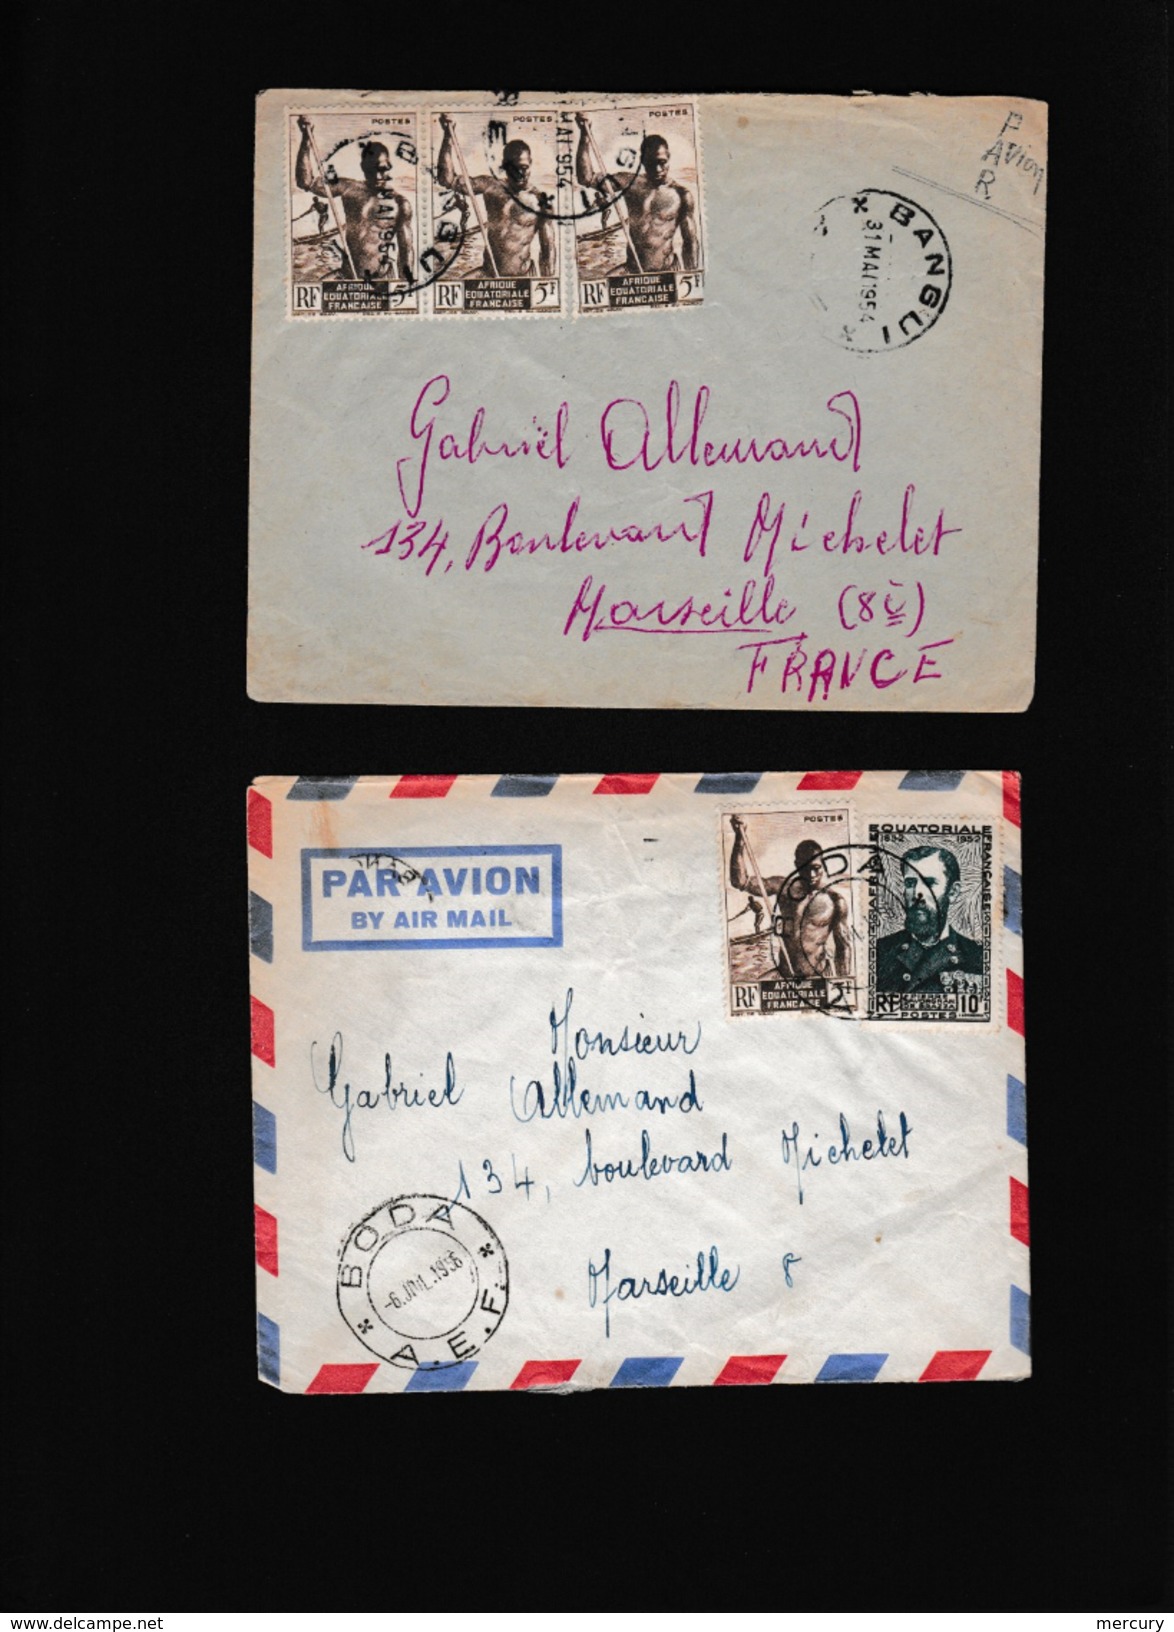 POSTES
POSTES
POSTES
RF AFRIQUE EQUATORIALE FRANÇAISE 5F
RF AFRIQUE EQUATORIALE FRANÇAISE 5F
RF AFRIQUE EQUATORIALE FRANÇAISE 5F
BANGUI
31 MAI 1954
MAI 1954
P
Avion
R
BANGUI
31 MAI 1954
Gabriel Allemand
134, Boulevard Michelet
Marseille (8è)
FRANCE
PAR AVION
BY AIR MAIL
POSTES
RF AFRIQUE EQUATORIALE FRANÇAISE 5F
AFRIQUE EQUATORIALE FRANÇAISE
1852 1952
RF 10F
POSTES
BODA
Monsieur
Gabriel Allemand
134, boulevard Michelet
Marseille 8
BODA
-6 JUIL. 1956
A.E.F.
delcampe.net
mercury